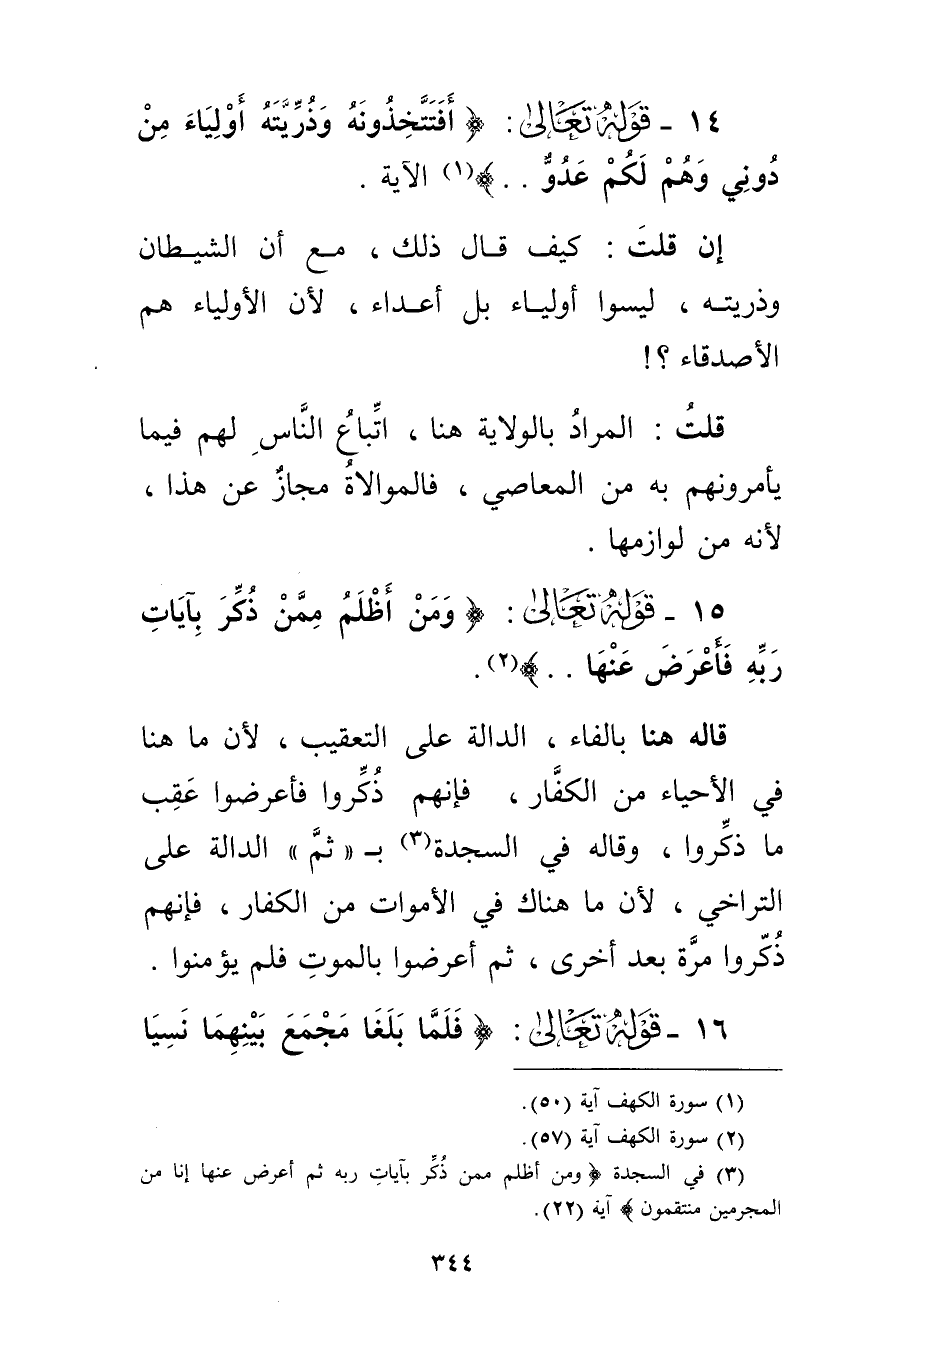 ١٤ - قَوْلُهُ تَعَالَىٰ : ﴿ أَفَتَتَّخِذُونَهُ وَذُرِّيَّتَهُ أَوْلِيَاءَ مِنْ
دُونِي وَهُمْ لَكُمْ عَدُوٌّ . . ﴾(١) الآية .
إن قلتَ : كيف قال ذلك ، مع أن الشيطان
وذريته ، ليسوا أولياء بل أعداء ، لأن الأولياء هم
الأصدقاء ؟!
قلتُ : المرادُ بالولاية هنا ، اتِّباعُ النَّاسِ لهم فيما
يأمرونهم به من المعاصي ، فالموالاةُ مجازٌ عن هذا ،
لأنه من لوازمها .
١٥ - قَوْلُهُ تَعَالَىٰ : ﴿ وَمَنْ أَظْلَمُ مِمَّنْ ذُكِّرَ بِآيَاتِ
رَبِّهِ فَأَعْرَضَ عَنْهَا . . ﴾(٢).
قاله هنا بالفاء ، الدالة على التعقيب ، لأن ما هنا
في الأحياء من الكفَّار ، فإنهم ذُكِّروا فأعرضوا عَقِب
ما ذكِّروا ، وقاله في السجدة(٣) بـ « ثمَّ » الدالة على
التراخي ، لأن ما هناك في الأموات من الكفار ، فإنهم
ذُكّروا مرَّة بعد أخرى ، ثم أعرضوا بالموتِ فلم يؤمنوا .
١٦ - قَوْلُهُ تَعَالَىٰ : ﴿ فَلَمَّا بَلَغَا مَجْمَعَ بَيْنِهِمَا نَسِيَا
(١) سورة الكهف آية (٥٠).
(٢) سورة الكهف آية (٥٧).
(٣) في السجدة ﴿ ومن أظلم ممن ذُكِّر بآياتِ ربه ثم أعرض عنها إنا من
المجرمين منتقمون ﴾ آية (٢٢).
٣٤٤